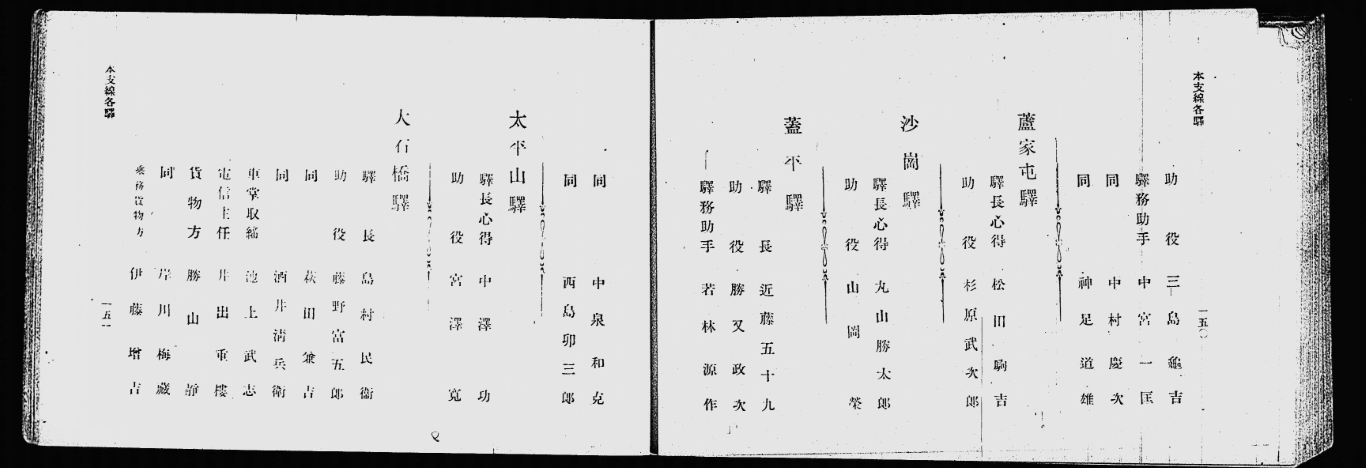 本支線各驛
助役 三島龜吉
驛務助手 中宮一匡
同 中村慶次
同 神足道雄
蘆家屯驛
驛長心得 松田駒吉
助役 杉原武次郎
沙崗驛
驛長心得 丸山勝太郎
助役 山岡榮
蓋平驛
驛長 近藤五十九
助役 勝又政次
驛務助手 若林源作
一五〇
同 中泉和克
同 西島卯三郎
太平山驛
驛長心得 中澤功
助役 宮澤寬
大石橋驛
驛長 島村民衞
助役 藤野富五郎
同 萩田兼吉
同 酒井淸兵衞
車掌取締 池上武志
電信主任 井出重樓
貨物方 勝山靜
同 岸川梅藏
乘務貨物方 伊藤增吉
本支線各驛
一五一